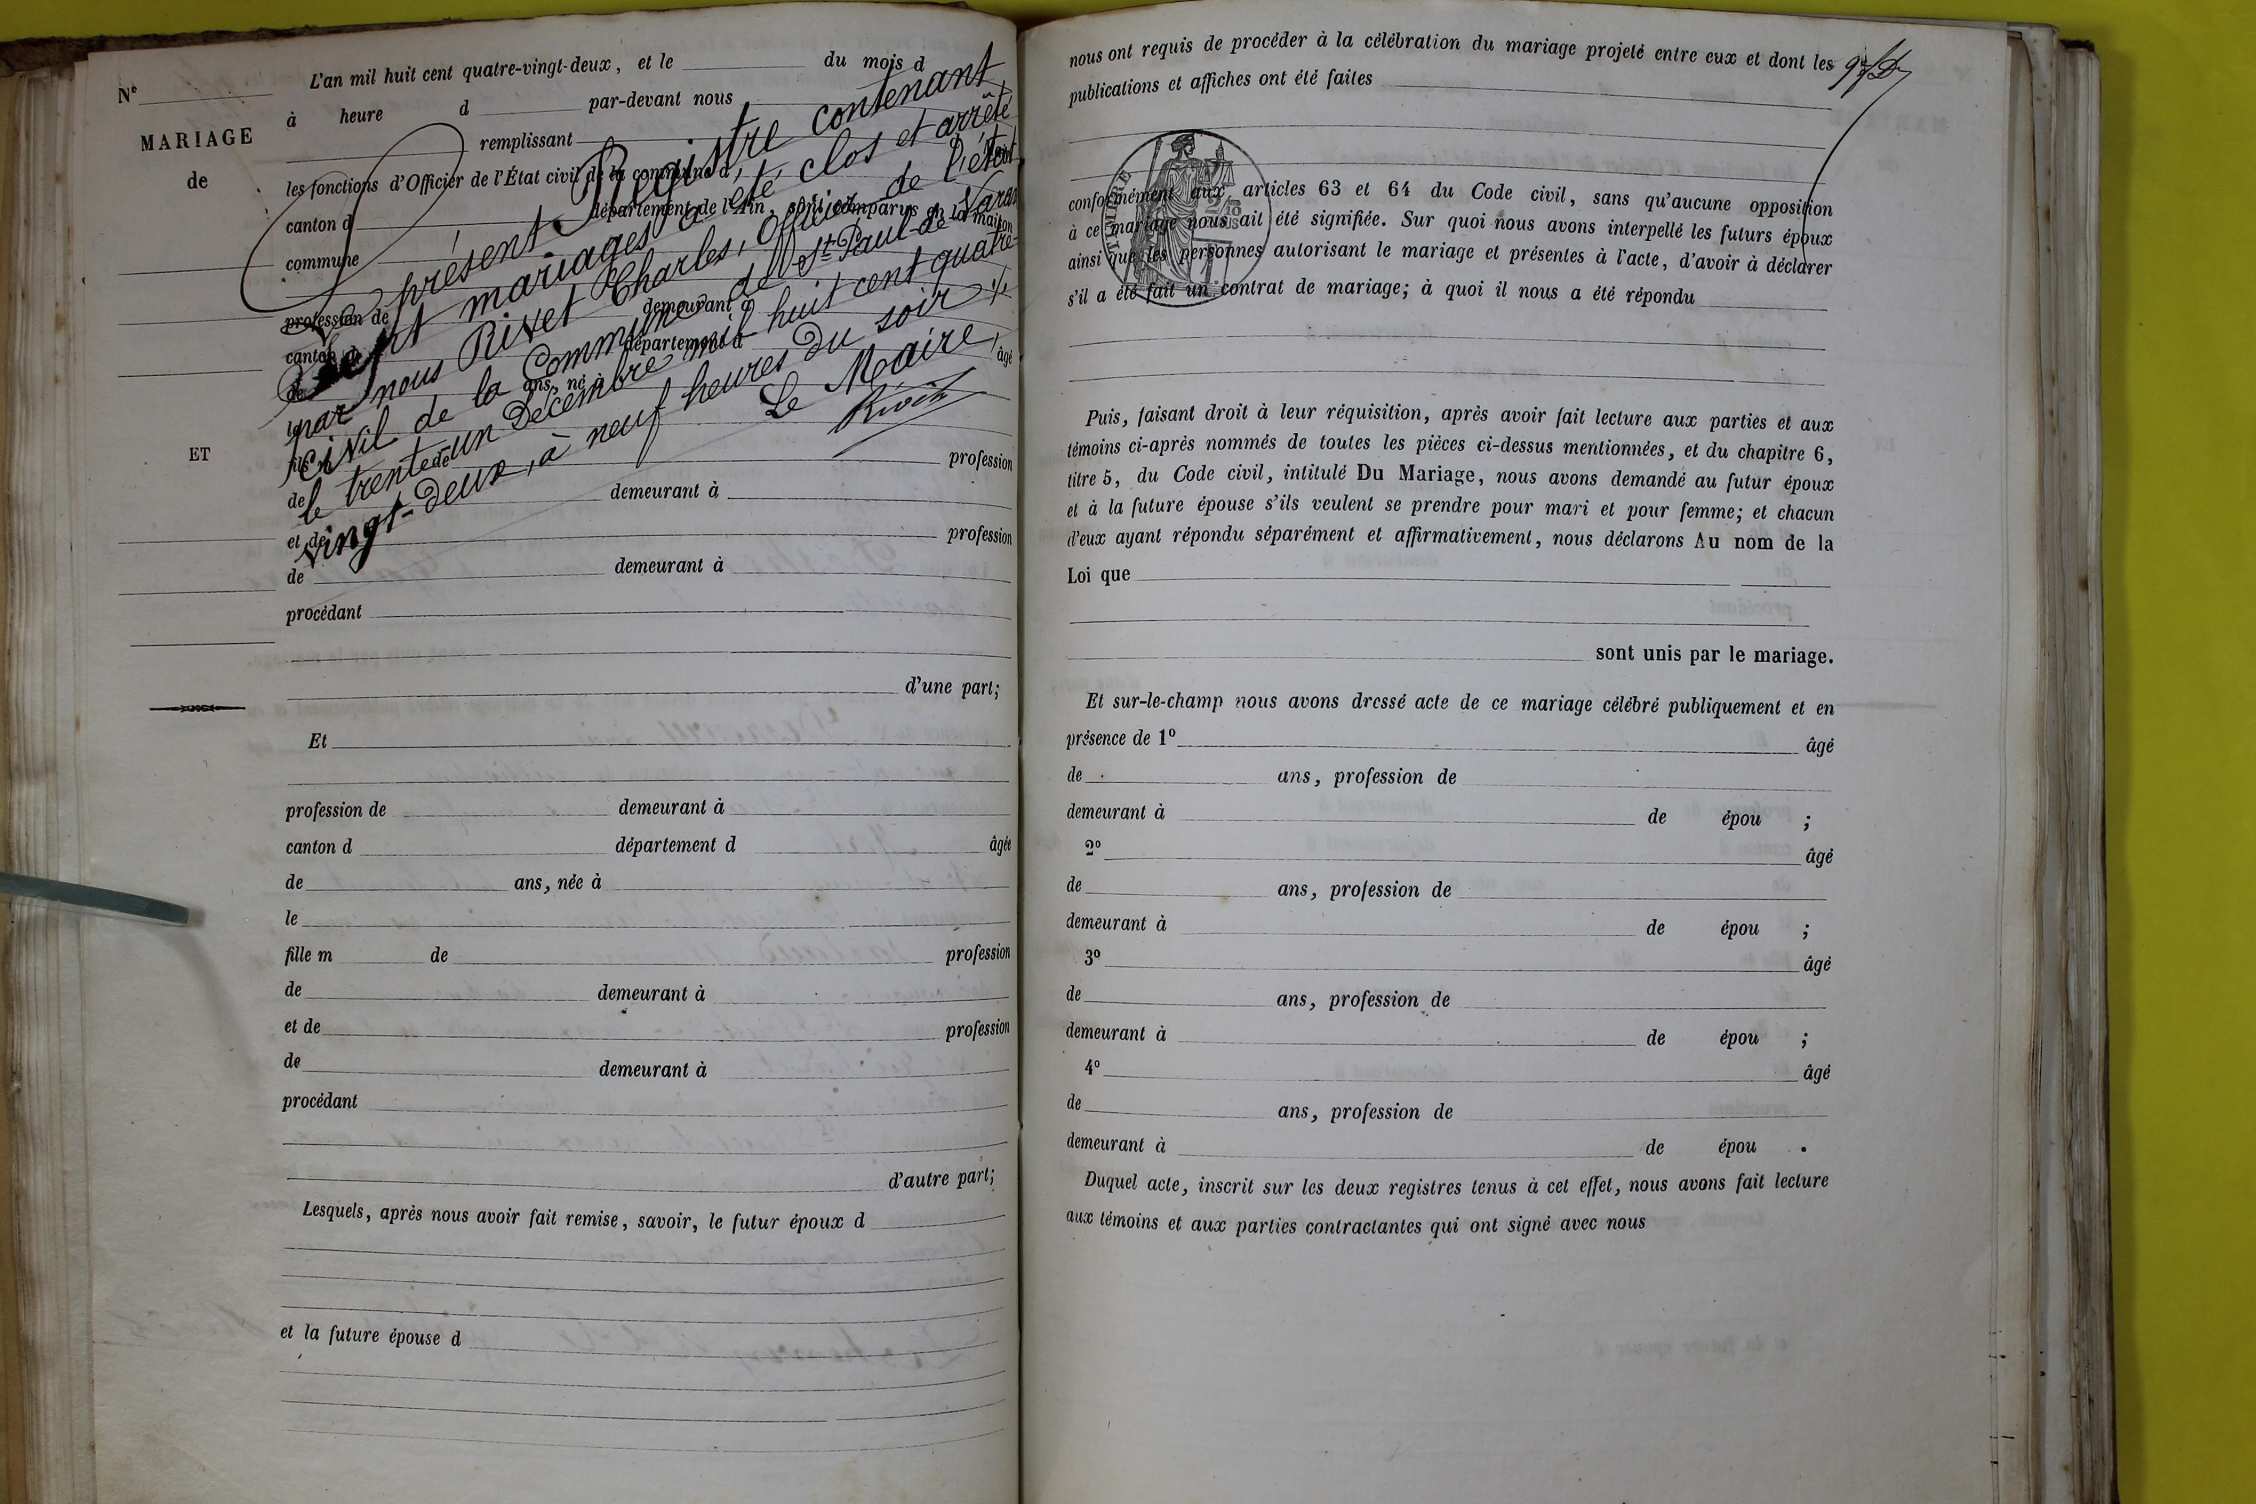 Nº
MARIAGE
de
ET
L'an mil huit cent quatre-vingt-deux, et le du mois d
à heure d par-devant nous
remplissant
les fonctions d'Officier de l'État civil de la commune d
canton d département de l'Ain, sont comparus en la maison
commune
profession de demeurant à
canton d département d âgé
de ans, né à
le
fils de profession
de demeurant à
et de profession
de demeurant à
procédant
d'une part;
Le présent Registre contenant
Sept mariages a été, clos et arrêté
par nous Rivet Charles, Officier de l'état
civil de la Commune de St Paul-de Varax
le trente un Décembre mil huit cent quatre-
vingt-deux, à neuf heures du soir
Le Maire
Rivet
Et
profession de demeurant à
canton d département d âgée
de ans, née à
le
fille m de profession
de demeurant à
et de profession
de demeurant à
procédant
d'autre part;
Lesquels, après nous avoir fait remise, savoir, le futur époux d
et la future épouse d
nous ont requis de procéder à la célébration du mariage projeté entre eux et dont les
publications et affiches ont été faites
conformément aux articles 63 et 64 du Code civil, sans qu'aucune opposition
à ce mariage nous ait été signifiée. Sur quoi nous avons interpellé les futurs époux
ainsi que les personnes autorisant le mariage et présentes à l'acte, d'avoir à déclarer
s'il a été fait un contrat de mariage; à quoi il nous a été répondu
Puis, faisant droit à leur réquisition, après avoir fait lecture aux parties et aux
témoins ci-après nommés de toutes les pièces ci-dessus mentionnées, et du chapitre 6,
titre 5, du Code civil, intitulé Du Mariage, nous avons demandé au futur époux
et à la future épouse s'ils veulent se prendre pour mari et pour femme; et chacun
d'eux ayant répondu séparément et affirmativement, nous déclarons Au nom de la
Loi que
sont unis par le mariage.
Et sur-le-champ nous avons dressé acte de ce mariage célébré publiquement et en
présence de 1º âgé
de ans, profession de
demeurant à de épou ;
2º âgé
de ans, profession de
demeurant à de épou ;
3º âgé
de ans, profession de
demeurant à de épou ;
4º âgé
de ans, profession de
demeurant à de épou .
Duquel acte, inscrit sur les deux registres tenus à cet effet, nous avons fait lecture
aux témoins et aux parties contractantes qui ont signé avec nous